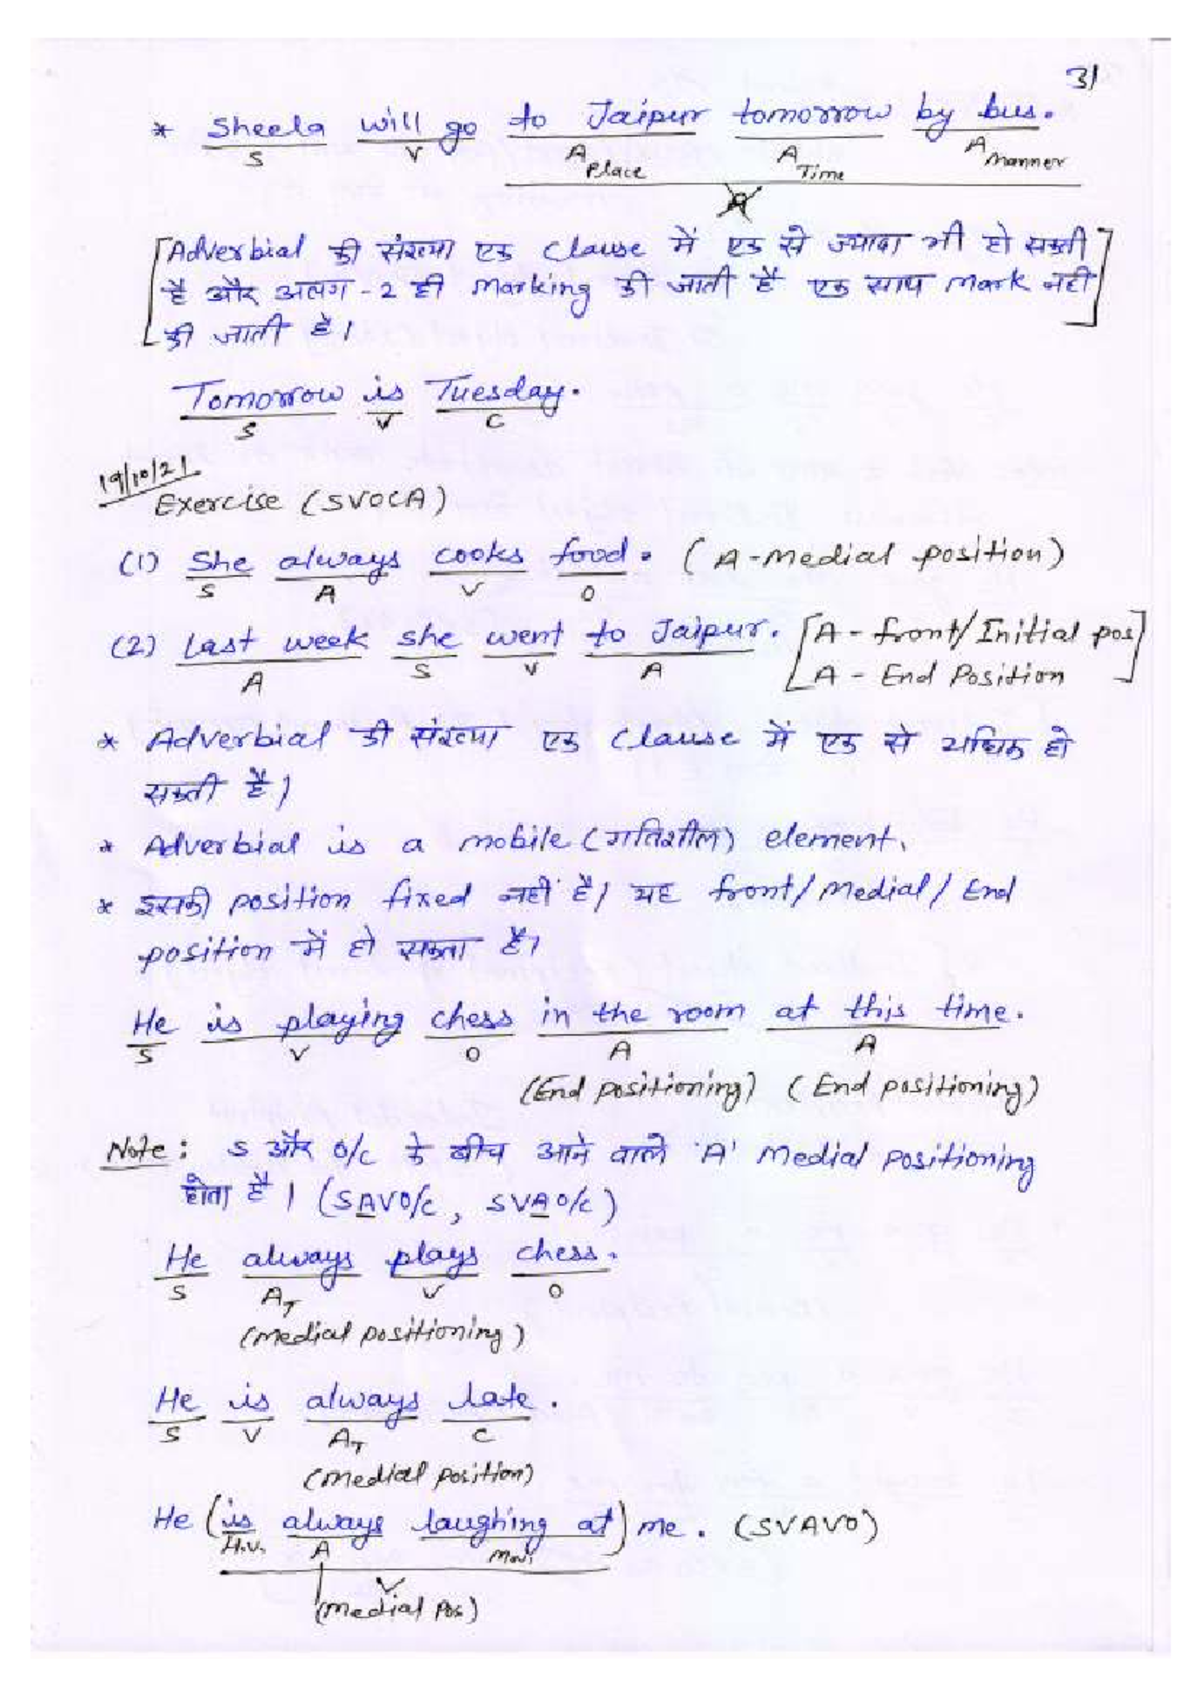 31
* Sheela will go to Jaipur tomorrow by bus.
S V A Place A Time A manner
A
[Adverbial की संख्या एक Clause में एक से ज्यादा भी हो सकती
है और अलग-2 ही Marking की जाती है एक साथ Mark नहीं
की जाती है।]
Tomorrow is Tuesday.
S V C
19/10/21
Exercise (SVOCA)
(1) She always cooks food. (A-Medial position)
S A V O
(2) Last week she went to Jaipur. [A - front/Initial pos
A S V A A - End Position]
* Adverbial की संख्या एक Clause में एक से अधिक हो
सकती है।
* Adverbial is a mobile (गतिशील) element.
* इसकी position fixed नहीं है। यह front/Medial/End
position में हो सकता है।
He is playing chess in the room at this time.
S V O A A
(End positioning) (End positioning)
Note: S और O/C के बीच आने वाले 'A' Medial positioning
होता है। (SAVO/C, SVAO/C)
He always plays chess.
S AT V O
(Medial positioning)
He is always late.
S V AT C
(Medial position)
He (is always laughing at) me. (SVAVO)
H.V. A M.V.
V
(Medial Pos)